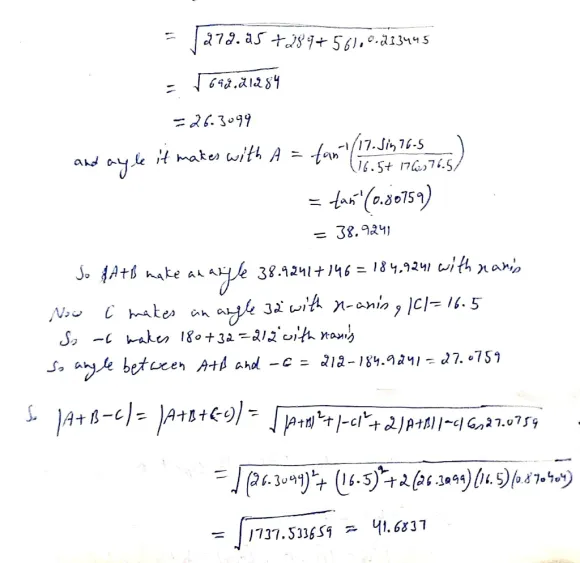 = √272.25 + 289 + 561 . 0.233445
= √692.21284
= 26.3099
and angle it makes with A = tan⁻¹(17.Sin76.5 / 16.5 + 17Cos76.5)
= tan⁻¹(0.80759)
= 38.9241
So A+B make an angle 38.9241 + 146 = 184.9241 with x axis
Now C makes an angle 32° with x-axis, |C| = 16.5
So -C makes 180 + 32 = 212° with xaxis
So angle between A+B and -C = 212 - 184.9241 = 27.0759
So |A+B-C| = |A+B+(-C)| = √|A+B|² + |-C|² + 2|A+B||-C| Cos27.0759
= √(26.3099)² + (16.5)² + 2(26.3099)(16.5)(0.870404)
= √1737.533659 = 41.6837